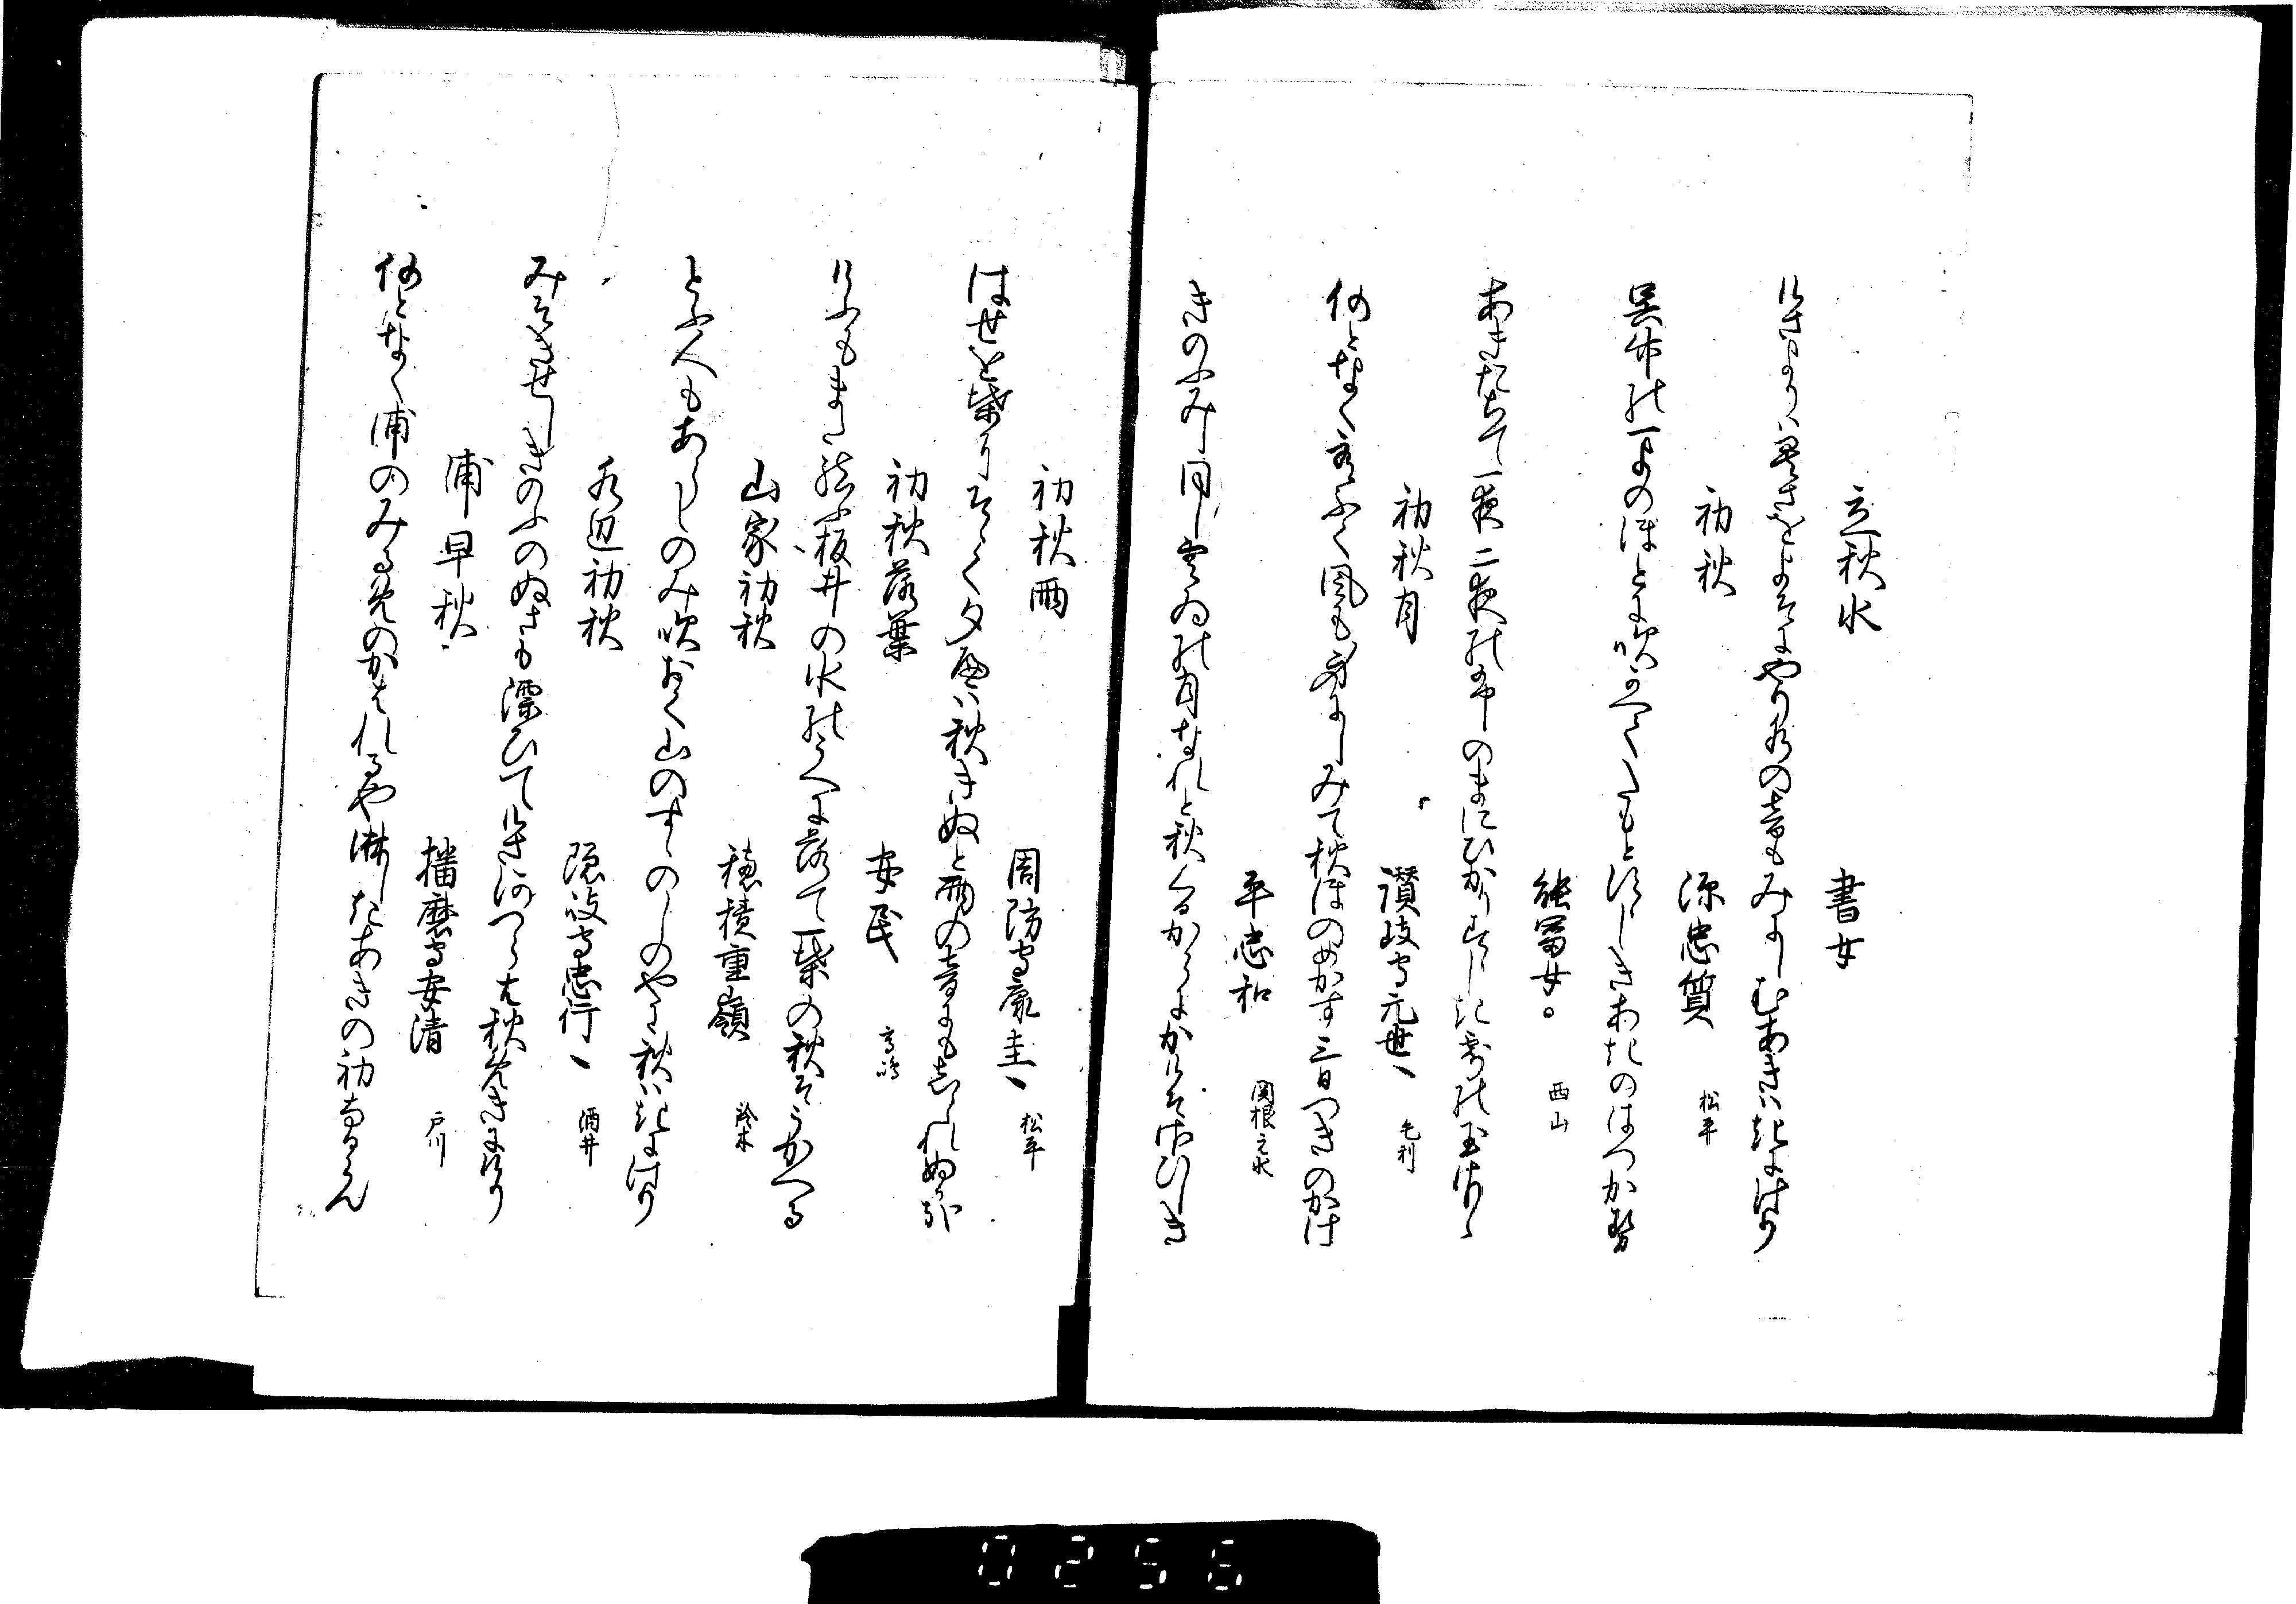 立秋水
書女
けさよりは暑さをよそにやり水の音もみにしむあきは来にけり
初秋
源忠質 松平
呉竹の一よのほとに吹かへてたもと涼しきあきのはつか勢
能冨女 西山
あきたちて一夜二夜の本のまにひかり涼しき露の玉
初秋月
讃岐守元世 毛利
何となく吹風も身にしみて秋ほのめかす三日つきのかけ
平忠和 関根之水
きのふみし同し雲ゐの月なれと秋くるからに
初秋雨
周防守康圭 松平
はせを葉にそゝく夕辺は秋きぬと雨の音にもしられぬるかな
初秋落葉
安民 高嶋
けふもまた結ふ板井の水のうへに落て一葉の秋そうかへる
山家初秋
穂積重嶺 鈴木
とふ人もあらしのみ吹おく山のすゝのしのやに秋は来にけり
水辺初秋
隠岐守忠行 酒井
みそきせしきのふのぬさも漂ひてけさ河つらは秋めきにけり
浦早秋
播磨守安清 戸川
何となく浦のみるめのかはれるや淋しきあきの初なるらん
0256